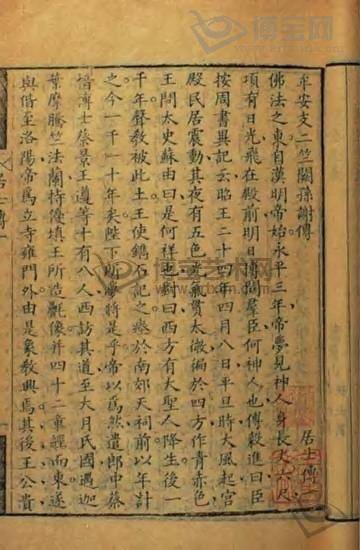 牟安支二竺闞孫謝傳 居士傳一
佛法之東自漢明帝始永平三年帝夢見神人身長丈六尺
項有日光飛在殿前明日博問羣臣何神人也傅毅進曰臣
按周書異記云昭王二十四年四月八日平旦時大風起宮
殿民居震動其夜有五色光氣貫太微徧於四方作青赤色
王問太史蘇由曰是何祥也對曰西方有大聖人降生後一
千年聲教被此土王使鐫石記之瘞於南郊天祠前以年計
之今一千一十年矣陛下所夢將是乎帝以為然遣郎中蔡
愔博士蔡景王遵等十有八人西訪其道至大月氏國遇迦
葉摩騰竺法蘭持優填王所造氎像并四十二章經而東遂
與偕至洛陽帝為立寺雍門外由是象教興焉其後王公貴
居士傳一
博宝艺术网